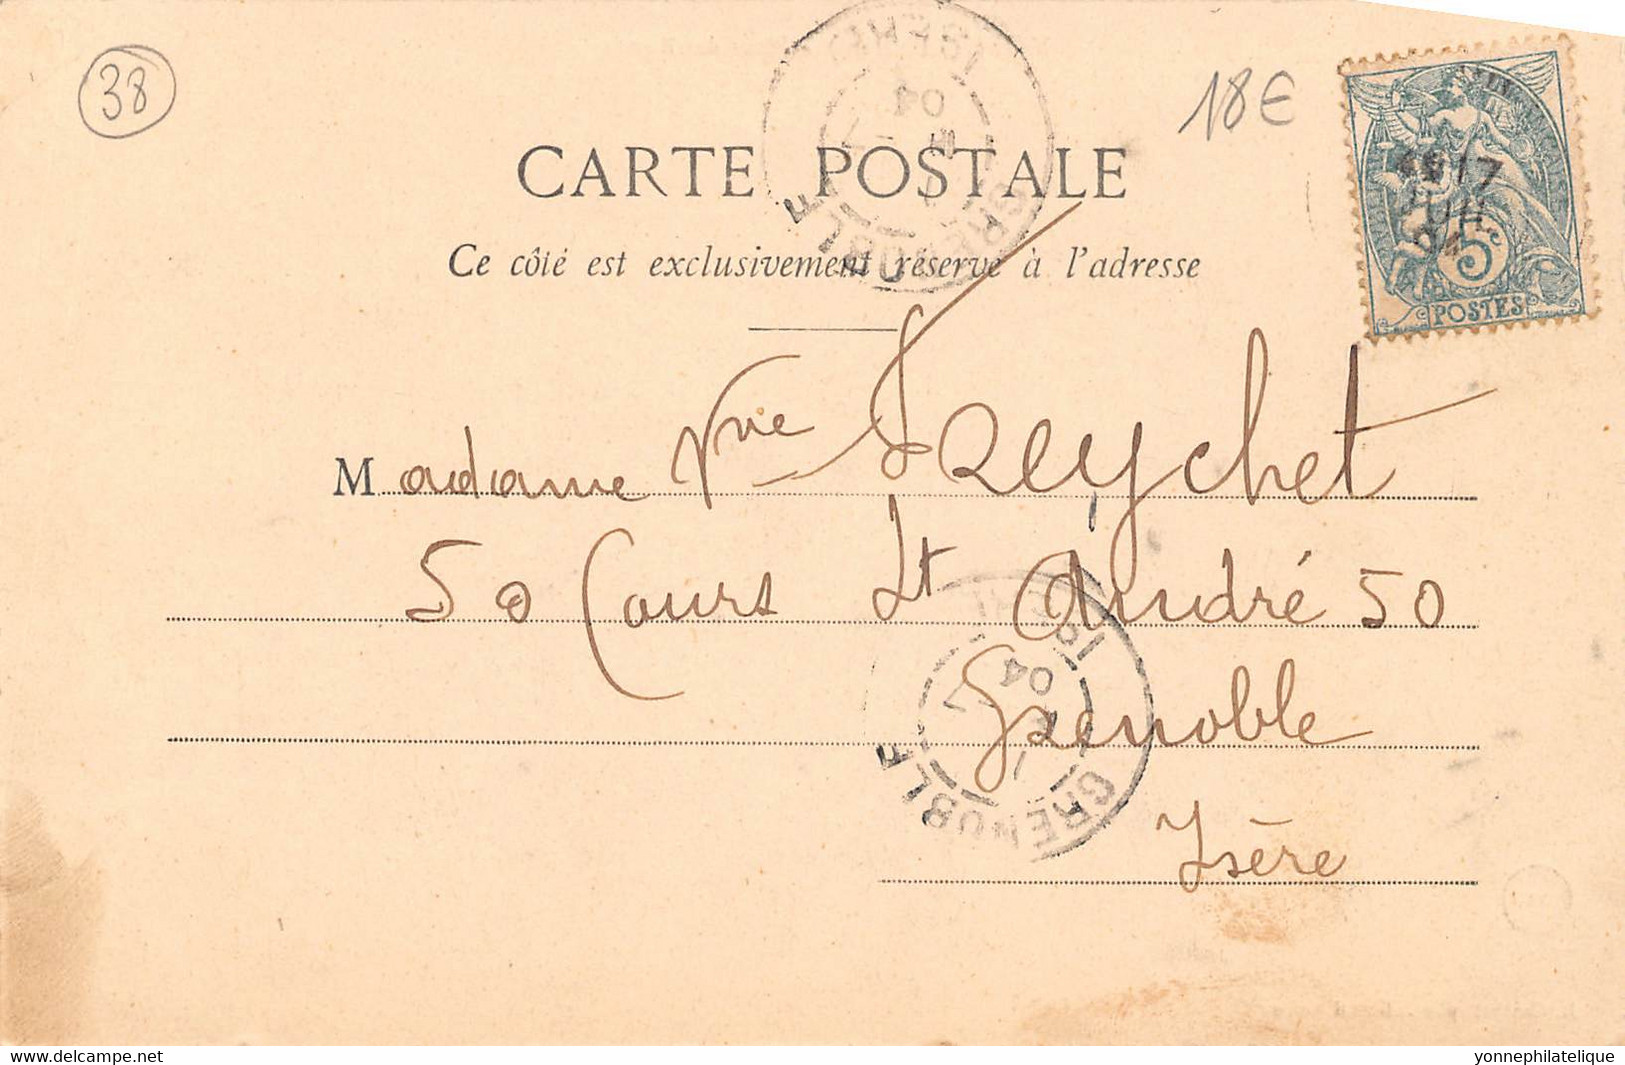 38
18€
CARTE POSTALE
Ce côté est exclusivement réservé à l'adresse
17
JUIL
04
5c
POSTES
GRENOBLE
ISERE
04
Madame Vve Freychet
50 Cours St André 50
Grenoble
Isère
GRENOBLE
04
delcampe.net
yonnephilatelique